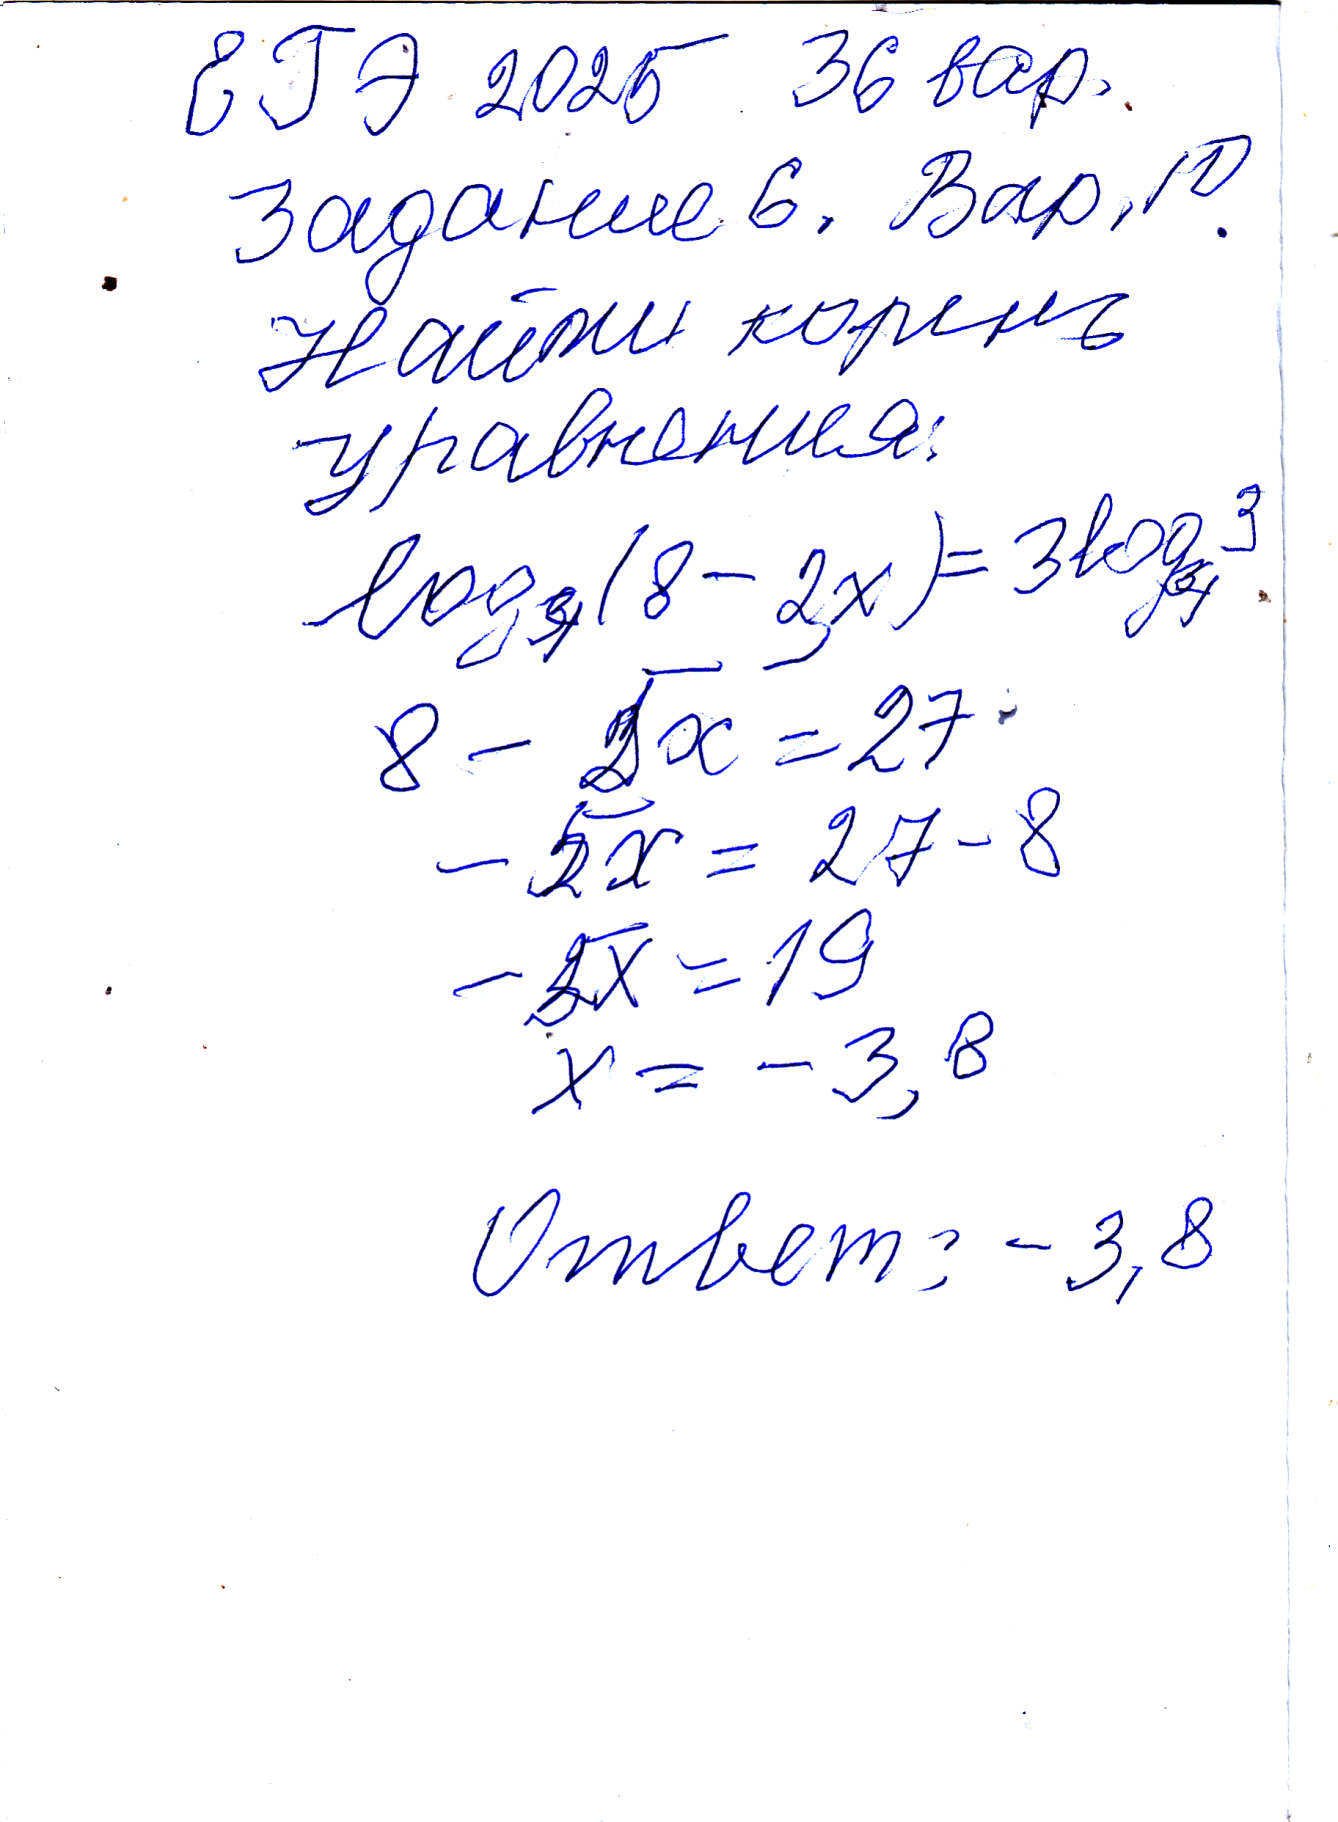 ЕГЭ 2025 36 вар.
Задание 6. Вар. 17.
Найти корень
уравнения:
log₄(8 - 2x) = 3log₄3
8 - 5x = 27
-5x = 27-8
-5x = 19
x = -3,8
Ответ: -3,8